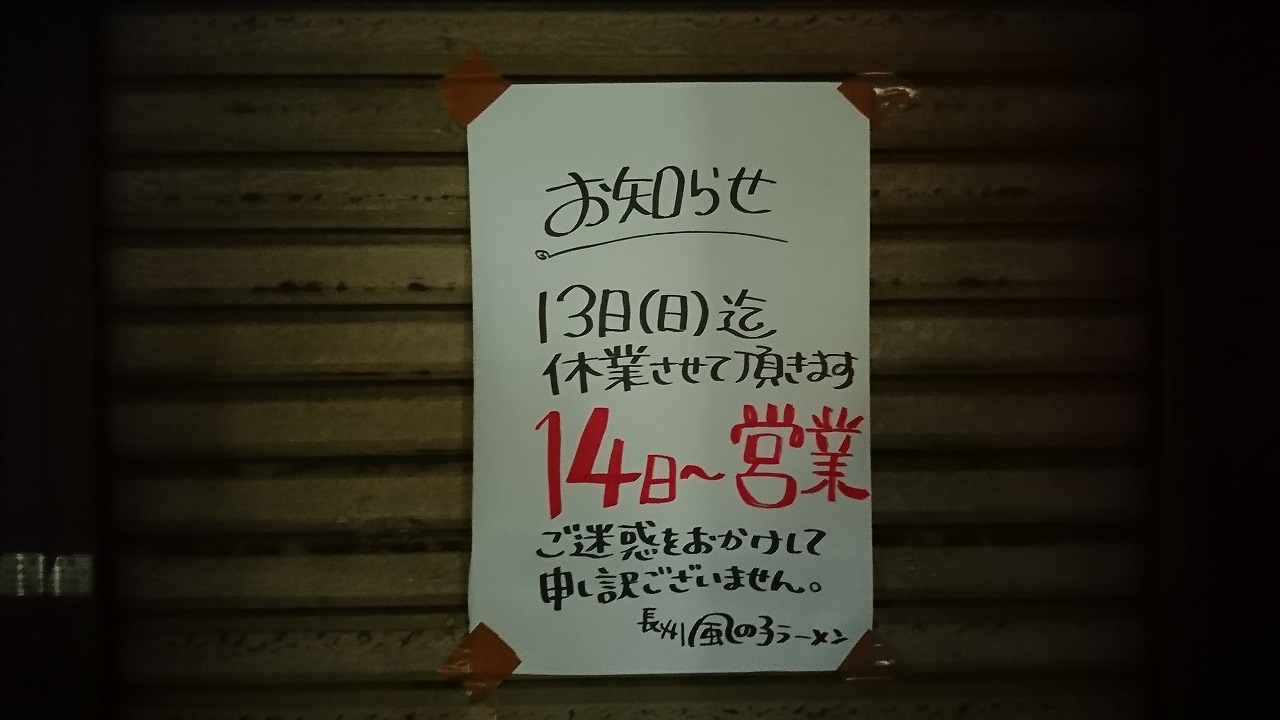 お知らせ
13日(日)迄
休業させて頂きます
14日～営業
ご迷惑をおかけして
申し訳ございません。
長州風の子ラーメン